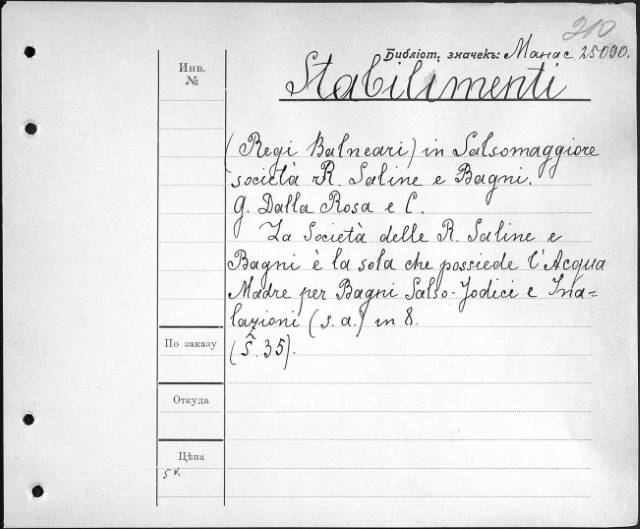 210
Библіот. значекъ: Манас 25090.
Инв.
№
Stabilimenti
(Regi Balneari) in Salsomaggiore
società R. Saline e Bagni.
G. Dalla Rosa e C.
La Società delle R. Saline e
Bagni è la sola che possiede l'Acqua
Madre per Bagni Salso-Jodici e Ina=
lazioni (s. a.) in 8.
(S. 35).
По заказу
Откуда
Цѣна
5 к